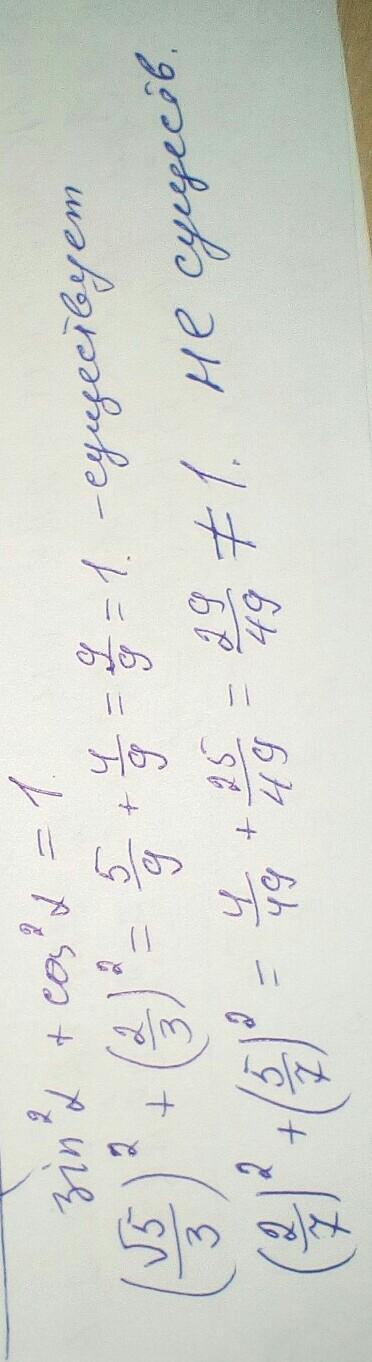 sin²α + cos²α = 1
(√5/3)² + (2/3)² = 5/9 + 4/9 = 9/9 = 1. - существует
(2/7)² + (5/7)² = 4/49 + 25/49 = 29/49 ≠ 1. не существ.